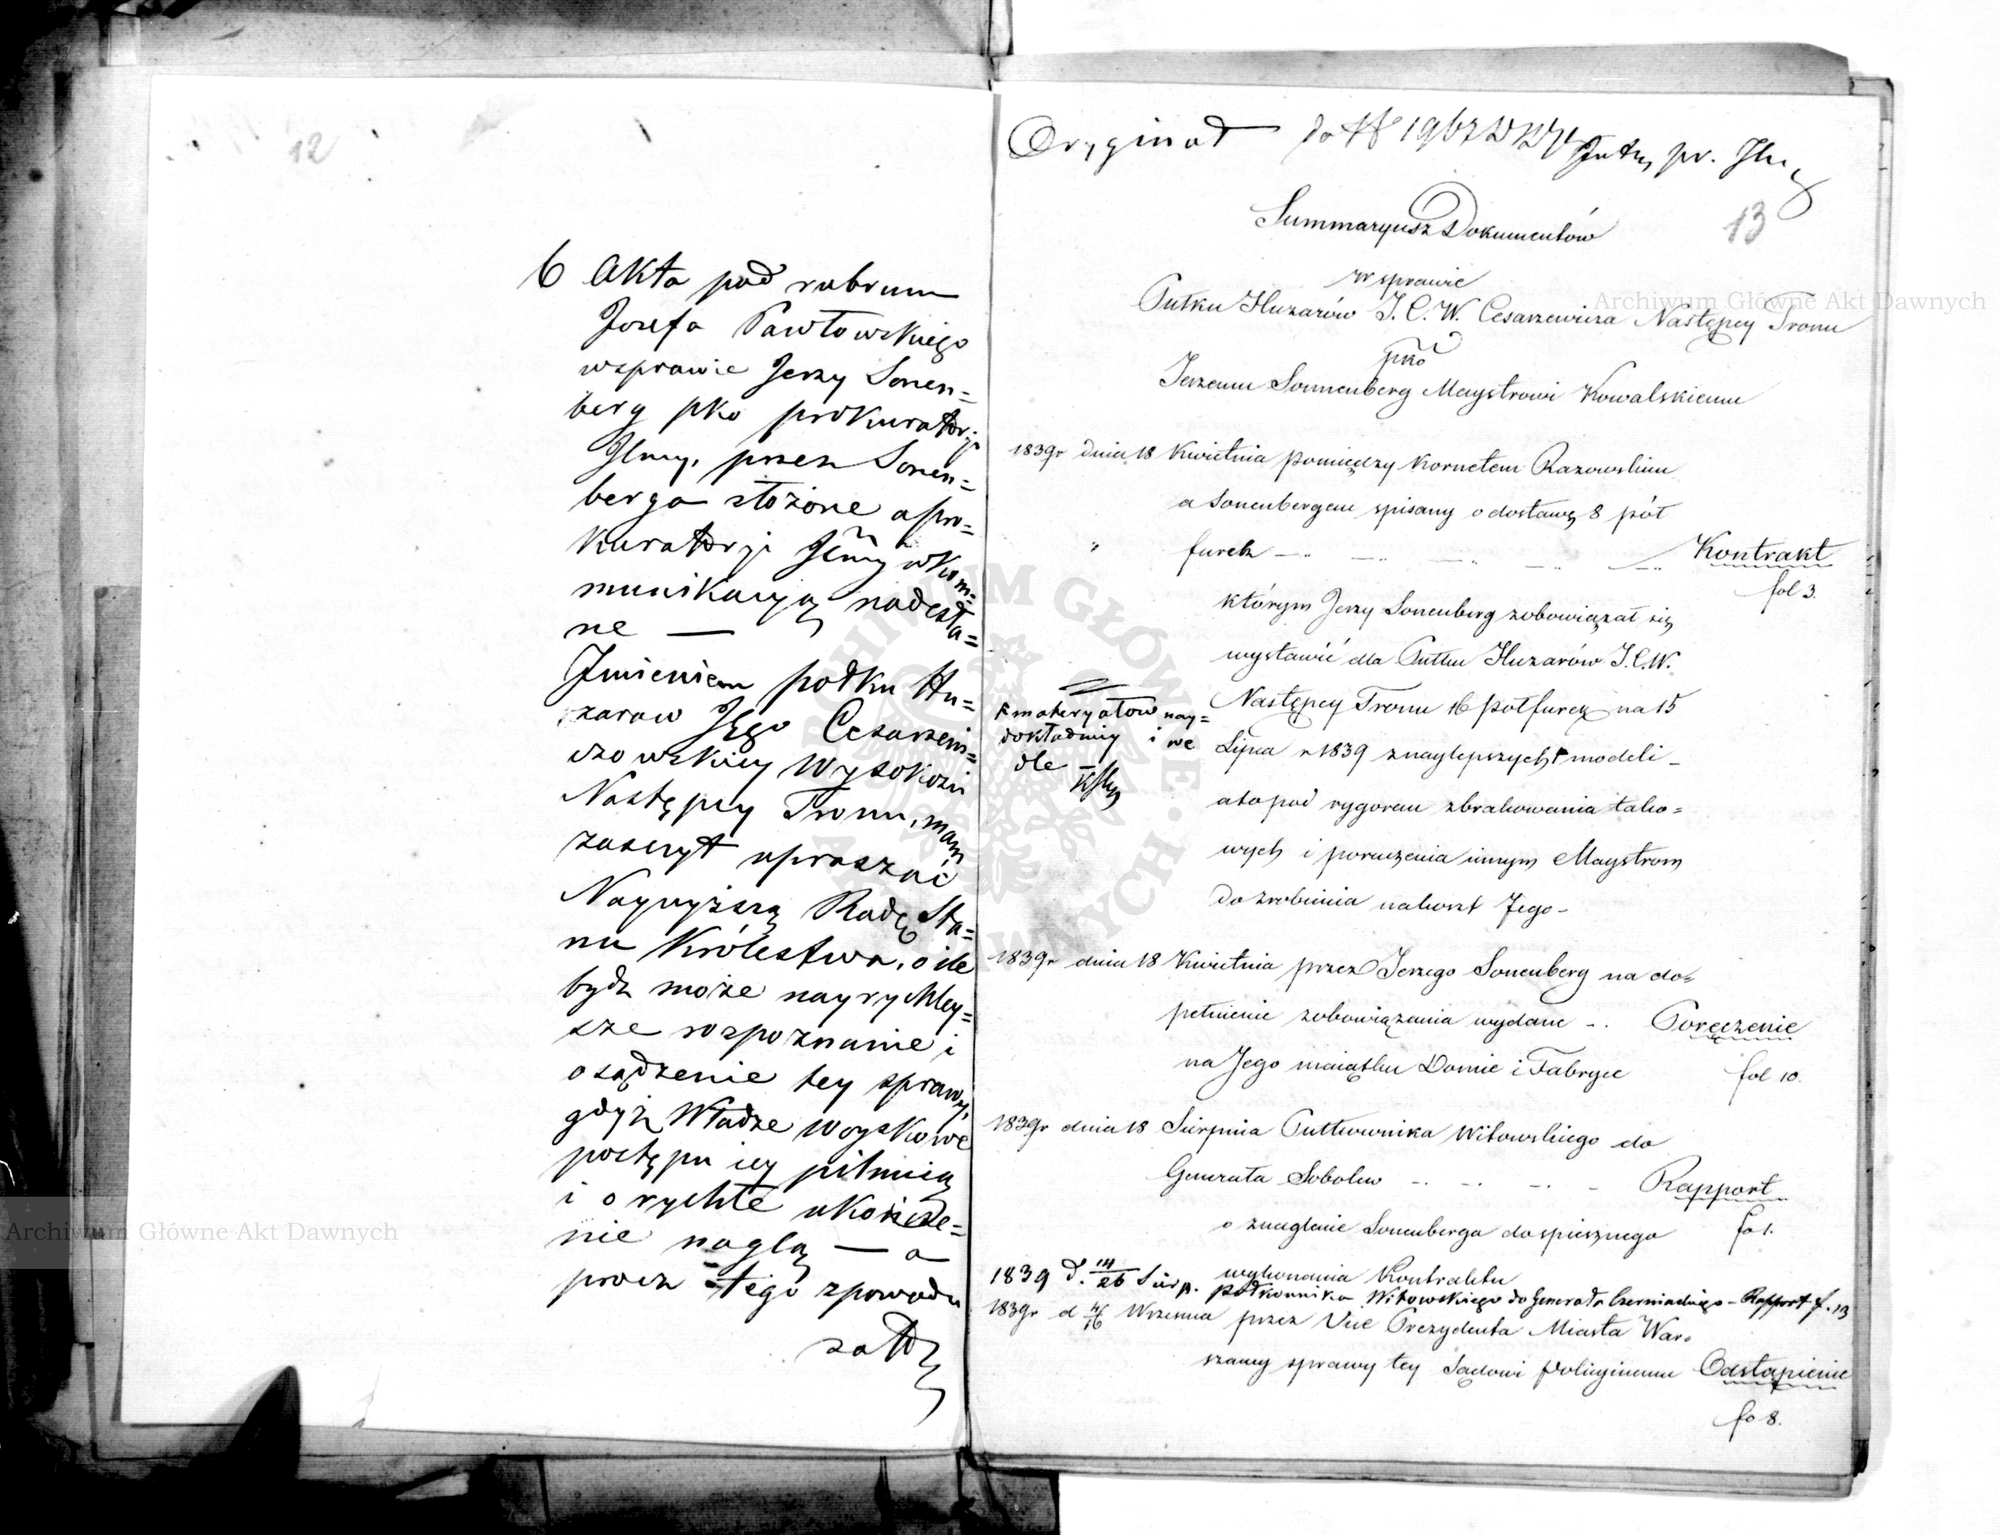 12
6 Akta pod rubrum
Jozefa Pawłowskiego
wsprawie Jerzy Sonen=
berg pko prokuratorji
Jlney, przez Sonen=
berga złożone a pro=
kuratorji Jlney w kom=
munikacyą nadesła=
ne —
Jmieniem połku Hu=
zarow Jego Cesarzewi=
czowskiey Wysokości
Następcy Tronu, mam
zaszczyt upraszać
Naywyższą Radę Sta=
nu Królestwa, o ile
bydź może nayrychley=
sze rozpoznanie i
osądzenie tey sprawy,
gdyż Władze woyskowe
postępu iey pilnują
i o rychłe ukończe=
nie naglą — a
procz tego zpowodu
Oryginał do № 1967
13
Summaryusz Dokumentów
w sprawie
Pułku Huzarów J. C. W. Cesarzewicza Następcy Tronu
pko
Jerzemu Sonnenberg Maystrowi Kowalskiemu
1839r dnia 18 Kwietnia pomiędzy Kornetem Razowskim
a Sonenbergem spisany o dostawę 8 pół
furek Kontrakt
fol 3.
którym Jerzy Sonenberg zobowiązał się
wystawić dla Pułku Huzarów J. C. W.
Następcy Tronu 16 połfurek na 15
Lipca r 1839 z naylepszych modeli
materyałow nay=
dokładniey i we
dle
ato pod rygorem zbrakowania tako=
wych i poruczenia innym Maystrom
do zrobienia na koszt Jego
1839r dnia 18 Kwietnia przez Jerzego Sonenberg na do=
pełnienie zobowiązania wydane Poręczenie
na Jego maiątku Domie i Fabryce fol 10.
1839r dnia 18 Sierpnia Pułkownika Witowskiego do
Generała Sobolew Rapport
o znaglenie Sonenberga do spiesznego fo 1.
wykonania Kontraktu
1839 d. 14/26 Sierp. połkownika Witowskiego do Generała Czerniackiego - Rapport f. 13
1839r d 4/16 Wrzesnia przez Vice Prezydenta Miasta War=
szawy sprawy tey Sądowi Policyinemu Odstąpienie
fo 8.
Archiwum Główne Akt Dawnych
Archiwum Główne Akt Dawnych